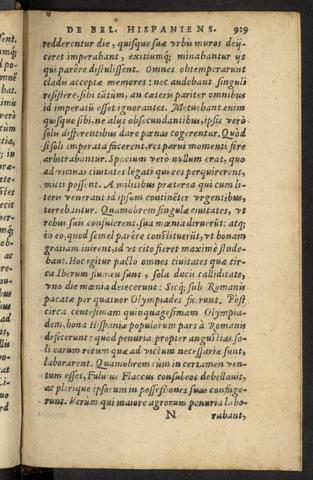 DE BEL. HISPANIENS. 929
redderentur die, quisque suæ vrbis muros deij
ceret imperabant, exitiumq; minabantur ijs
qui parêre distulissent. Omnes obtemperarunt
cladis acceptæ memores: nec audebant singuli
resistere, sibi tãtùm, an cæteris pariter omnibus
id imperatũ esset ignorantes. Metuebant enim
quisque sibi, ne alijs obsecundantibus, ipsis verò
solis differentibus dare pœnas cogerentur. Quòd
si soli imperata facerent, res parui momenti fore
arbitrabantur. Spacium verò nullum erat, quo
ad vicinas ciuitates legati qui res perquirerent,
mitti possent. A militibus præterea qui cum li-
teris venerant id ipsum continêter vrgentibus,
terrebantur. Quamobrem singulæ ciuitates, vt
rebus suis consulerent, sua mœnia diruerũt: atq;
in eo, quod semel parére cõstituerũt, vt bonam
gratiam inirent, id vt cito fieret maximè stude-
bant. Hoc igitur pacto omnes ciuitates quæ cir-
ca Iberum flumen sunt, sola ducis calliditate,
vno die mœnia deiecerunt: Sicq; sub Romanis
pacatæ per quatuor Olympiades fuerunt. Pòst
circa centesimam quinquagesimam Olympia-
dem, bona Hispaniæ populorum pars à Romanis
defecerunt: quòd penuria propter angustias so-
li earum rerum quæ ad victum necessariæ sunt,
laborarent. Quamobrem cùm in certamen ven
tum esset, Fuluius Flaccus consul eos debellauit,
ac plerique ipsorum in possessiones suas confuge-
runt. Verum qui maiore agrorum penuria labo-
N rabant,